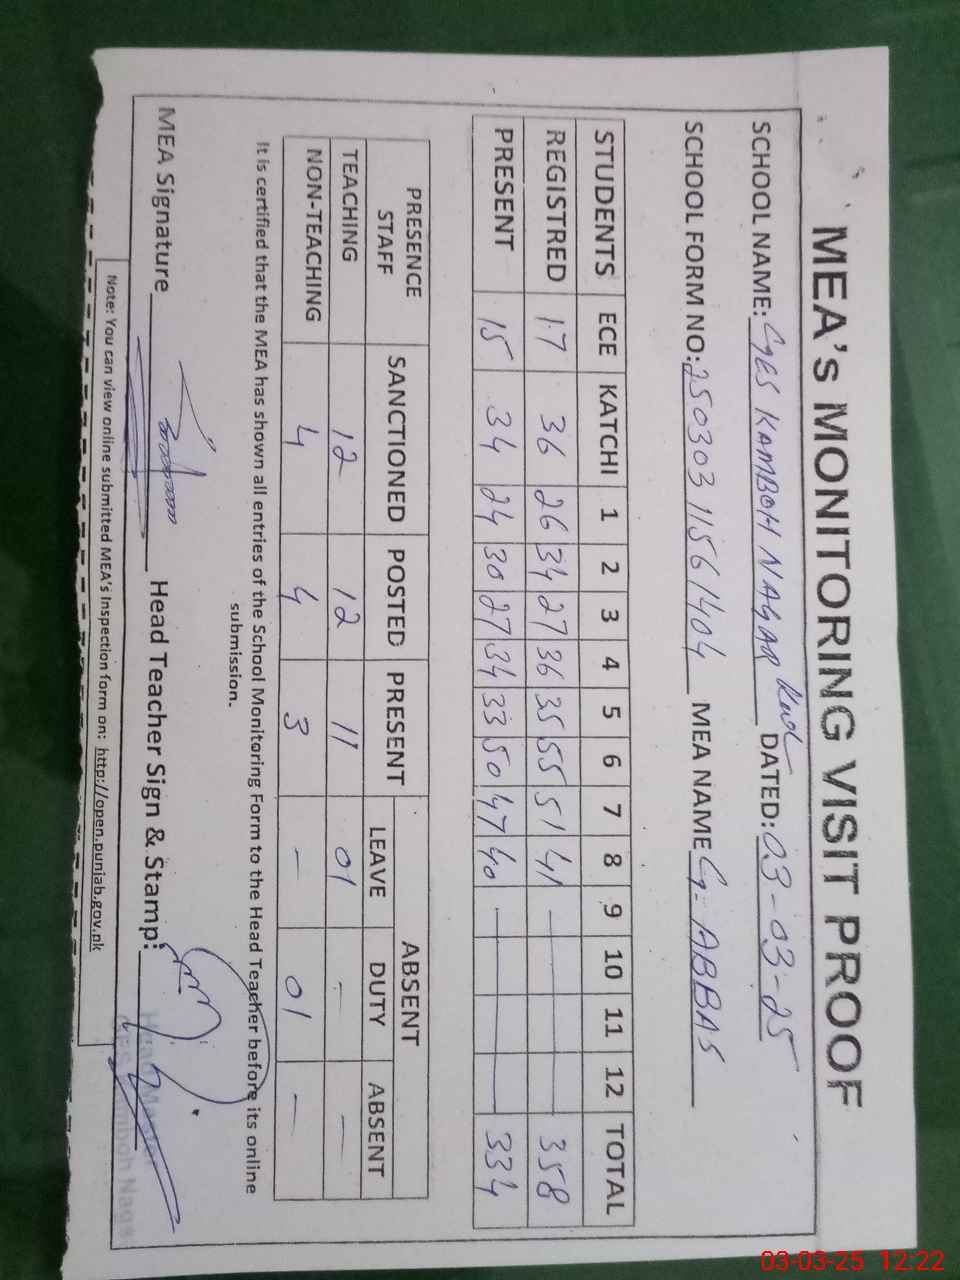 MEA's MONITORING VISIT PROOF
SCHOOL NAME: GES KAMBOH NAGAR DATED: 03-03-25
SCHOOL FORM NO: 25030311561404 MEA NAME G. ABBAS
STUDENTS ECE KATCHI 1 2 3 4 5 6 7 8 9 10 11 12 TOTAL
REGISTRED 17 36 26 34 27 36 35 55 51 41 — — — — 358
PRESENT 15 34 24 30 27 34 33 50 47 40 — — — — 334
PRESENCE STAFF SANCTIONED POSTED PRESENT ABSENT
LEAVE DUTY ABSENT
TEACHING 12 12 11 01 — —
NON-TEACHING 4 4 3 — 01 —
It is certified that the MEA has shown all entries of the School Monitoring Form to the Head Teacher before its online
submission.
MEA Signature Head Teacher Sign & Stamp:
Head Master
GES Kamboh Nagar
Note: You can view online submitted MEA's Inspection form on: http://open.punjab.gov.pk
03-03-25 12:22